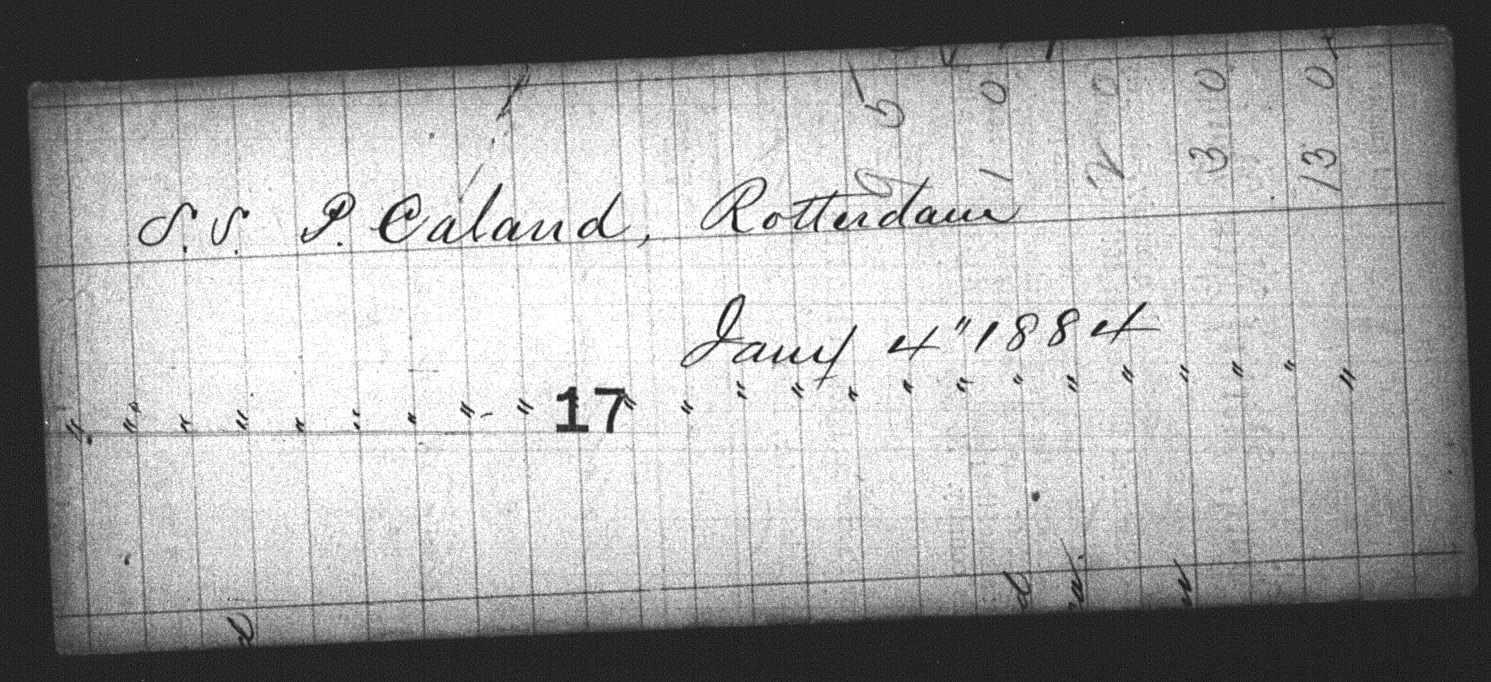 S.S. P. Caland, Rotterdam
Jany 4" 1884
" " " " " " " " " 17 " " " " " " " " " " " " " "
9 5
1 0
2 0
3 0
13 0